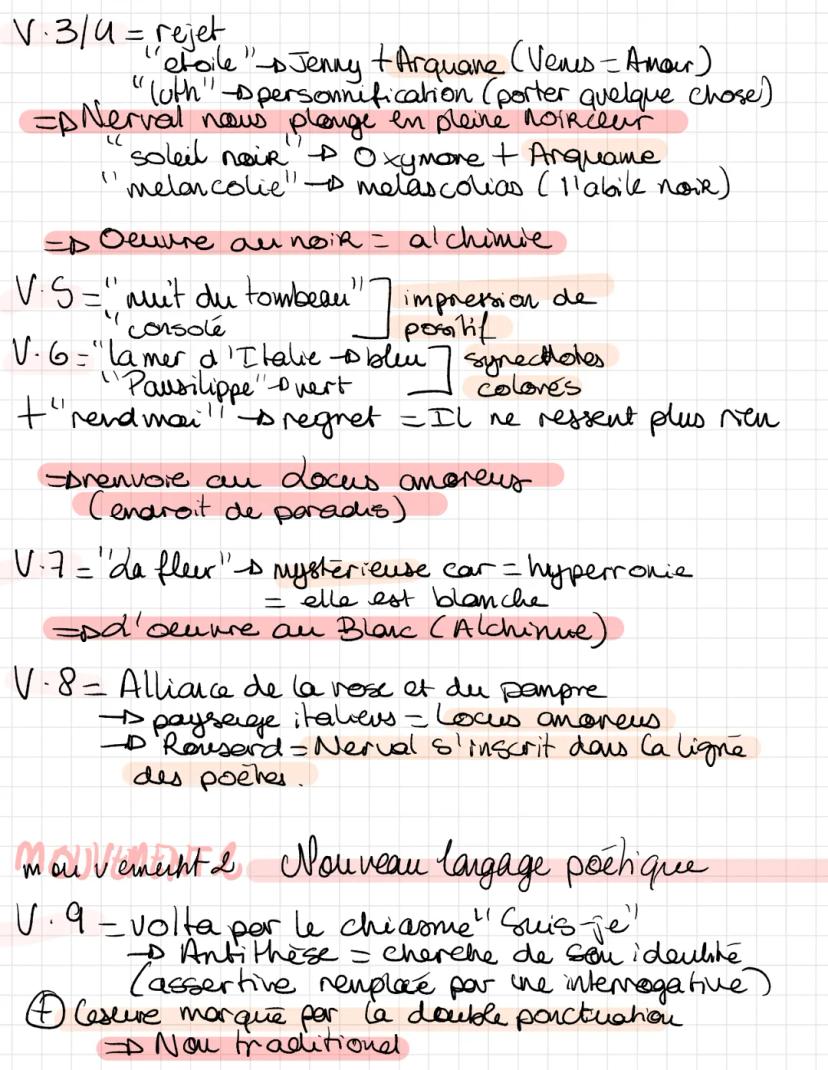 V.3/4 = rejet
"etoile" → Jenny + Arquane (Venus = Amour)
"luth" → personnification (porter quelque chose)
⇒ Nerval nous plonge en pleine noirceur
"soleil noir" → Oxymore + Arquame
"melancolie" → melascolias (l'abile noir)
⇒ Oeuvre au noir = alchimie
V.5 = "nuit du tombeau" ] impression de
"consolé ] positif
V.6 = "la mer d'Italie → bleu ] synecdotes
"Pausilippe" → vert ] colorés
+ "rend moi" → regret = Il ne ressent plus rien
⇒ renvoie au Locus amoreus
(endroit de paradis)
V.7 = "La fleur" → mystérieuse car = hyperronie
= elle est blanche
⇒ d'oeuvre au Blanc (Alchimie)
V.8 = Alliance de la rose et du pampre
→ paysage italiens = Locus amoreus
→ Ronsard = Nerval s'inscrit dans la ligné
des poètes.
mouvement 2 Nouveau langage poétique
V.9 = volta par le chiasme "Suis-je"
→ Antithèse = cherche de son identité
(assertive remplacé par une interrogative)
(+) Cesure marqué par la double ponctuation
⇒ Non traditionel